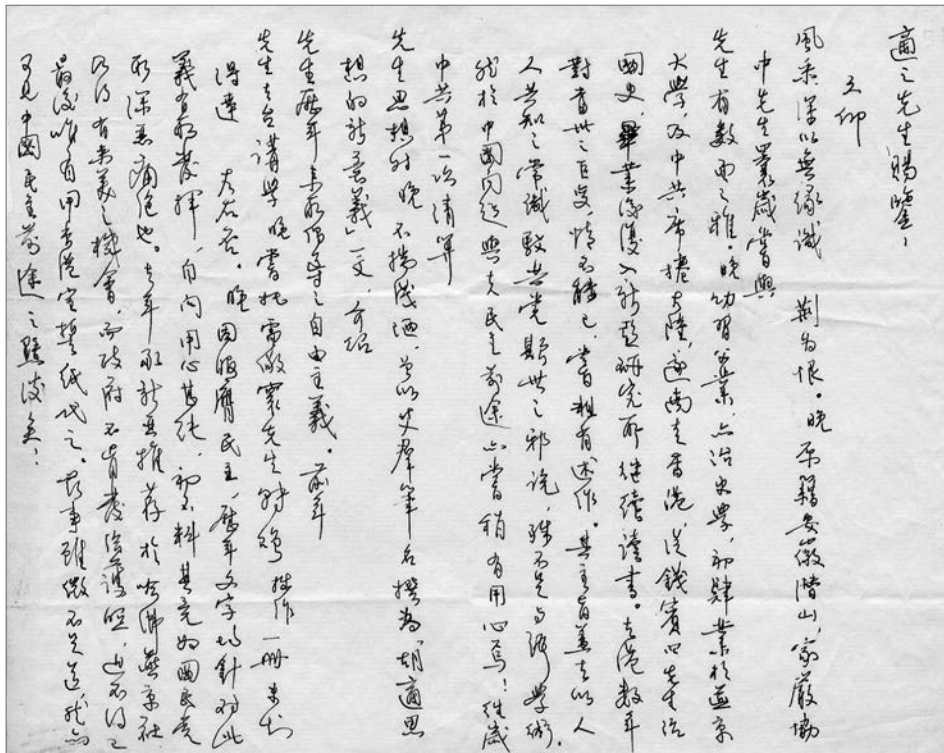 適之先生賜鑒：
久仰
風采深以無緣識　荊為恨。晚原籍安徽潛山，家嚴協
中先生曩歲嘗與
先生有數面之雅。晚幼習舉業，亦治史學，初肄業於燕京
大學，及中共席捲大陸，遂南走香港，從錢賓四先生治
國史，畢業後復入新亞研究所繼續讀書。去港數年
對當世之巨變，情不能已，嘗粗有述作。其主旨蓋在以人
人共知之常識駁共黨斯世之邪說，殊不足與語學術。
然於中國問題與夫民主前途亦嘗稍有用心焉！往歲
中共第一次清算
先生思想時晚不揣淺陋，曾以艾群筆名撰為「胡適思
想的新意義」一文，介紹
先生歷年來所倡導之自由主義。前年
先生去台講學晚嘗托雷儆寰先生轉贈拙作一冊未知
得達　左右否。晚因服膺民主，歷年文字均針對此
義有所發揮，自問用心甚純，初不料其竟為國民黨
所深惡痛絕也。去年承新亞推荐於哈佛燕京社
乃得有來美之機會，而政府不肯發給護照，迫不得已
最後唯有用香港宣誓紙代之。此事雖微不足道，然亦
可見中國民主前途之黯淡矣！